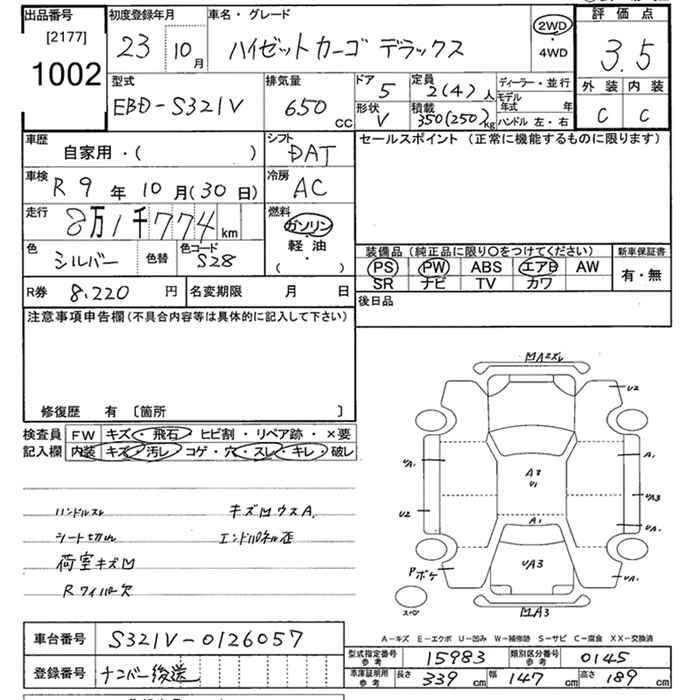 出品番号
[2177]
1002
初度登録年月
23 10月
車名・グレード
ハイゼットカーゴ デラックス
2WD
・4WD
評価点
3.5
外装 内装
C C
型式
EBD-S321V
排気量
650 CC
ドア
5
定員
2(4)人
形状
V
積載
350(250)kg
ディーラー・並行
モデル年式 年
ハンドル 左・右
車歴
自家用・( )
シフト
DAT
車検
R 9 年 10 月(30日)
冷房
AC
走行
8万1千774 km
燃料
ガソリン
・軽油
・( )
色
シルバー
色替
色コード
S28
R券 8,220 円
名変期限 月 日
セールスポイント (正常に機能するものに限ります)
装備品(純正品に限り○をつけてください)
PS PW ABS エアB AW
SR ナビ TV カワ
新車保証書
有・無
後日品
注意事項申告欄(不具合内容等は具体的に記入して下さい)
修復歴 有 〔箇所 〕
検査員記入欄
FW キズ・飛石・ヒビ割・リペア跡・×要
内装 キズ・汚レ・コゲ・穴・スレ・キレ・破レ
ハンドルスレ キズ凹ウスA.
シート切れ エンドパネル歪
荷室キズ凹
Rワイパー欠
凹A2スレ
U2
UA1
A1
A2
U1
UA3
U2
A1
UA1
Pボケ
UA3
UA1
スペア
凹A3
A-キズ E-エクボ U-凹み W-補修跡 S-サビ C-腐食 XX-交換済
車台番号 S321V-0126057
登録番号 ナンバー後送
型式指定番号 参考 15983
類別区分番号 参考 0145
車庫証明用 参考 長さ 339 cm 幅 147 cm 高さ 189 cm